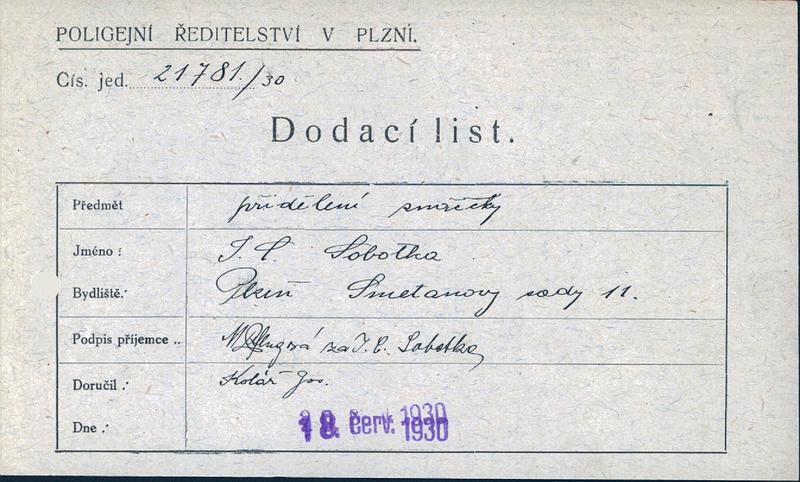 POLIGEJNÍ ŘEDITELSTVÍ V PLZNÍ.
Čís. jed. 21781./30
Dodací list.
Předmět přidělení
Jméno : I. C Sobotka
Bydliště.· Plzeň Smetanovy sady 11.
Podpis příjemce .. za I. C. Sobotka
Doručil .· Kolář Jos.
Dne .· 18. červ. 1930